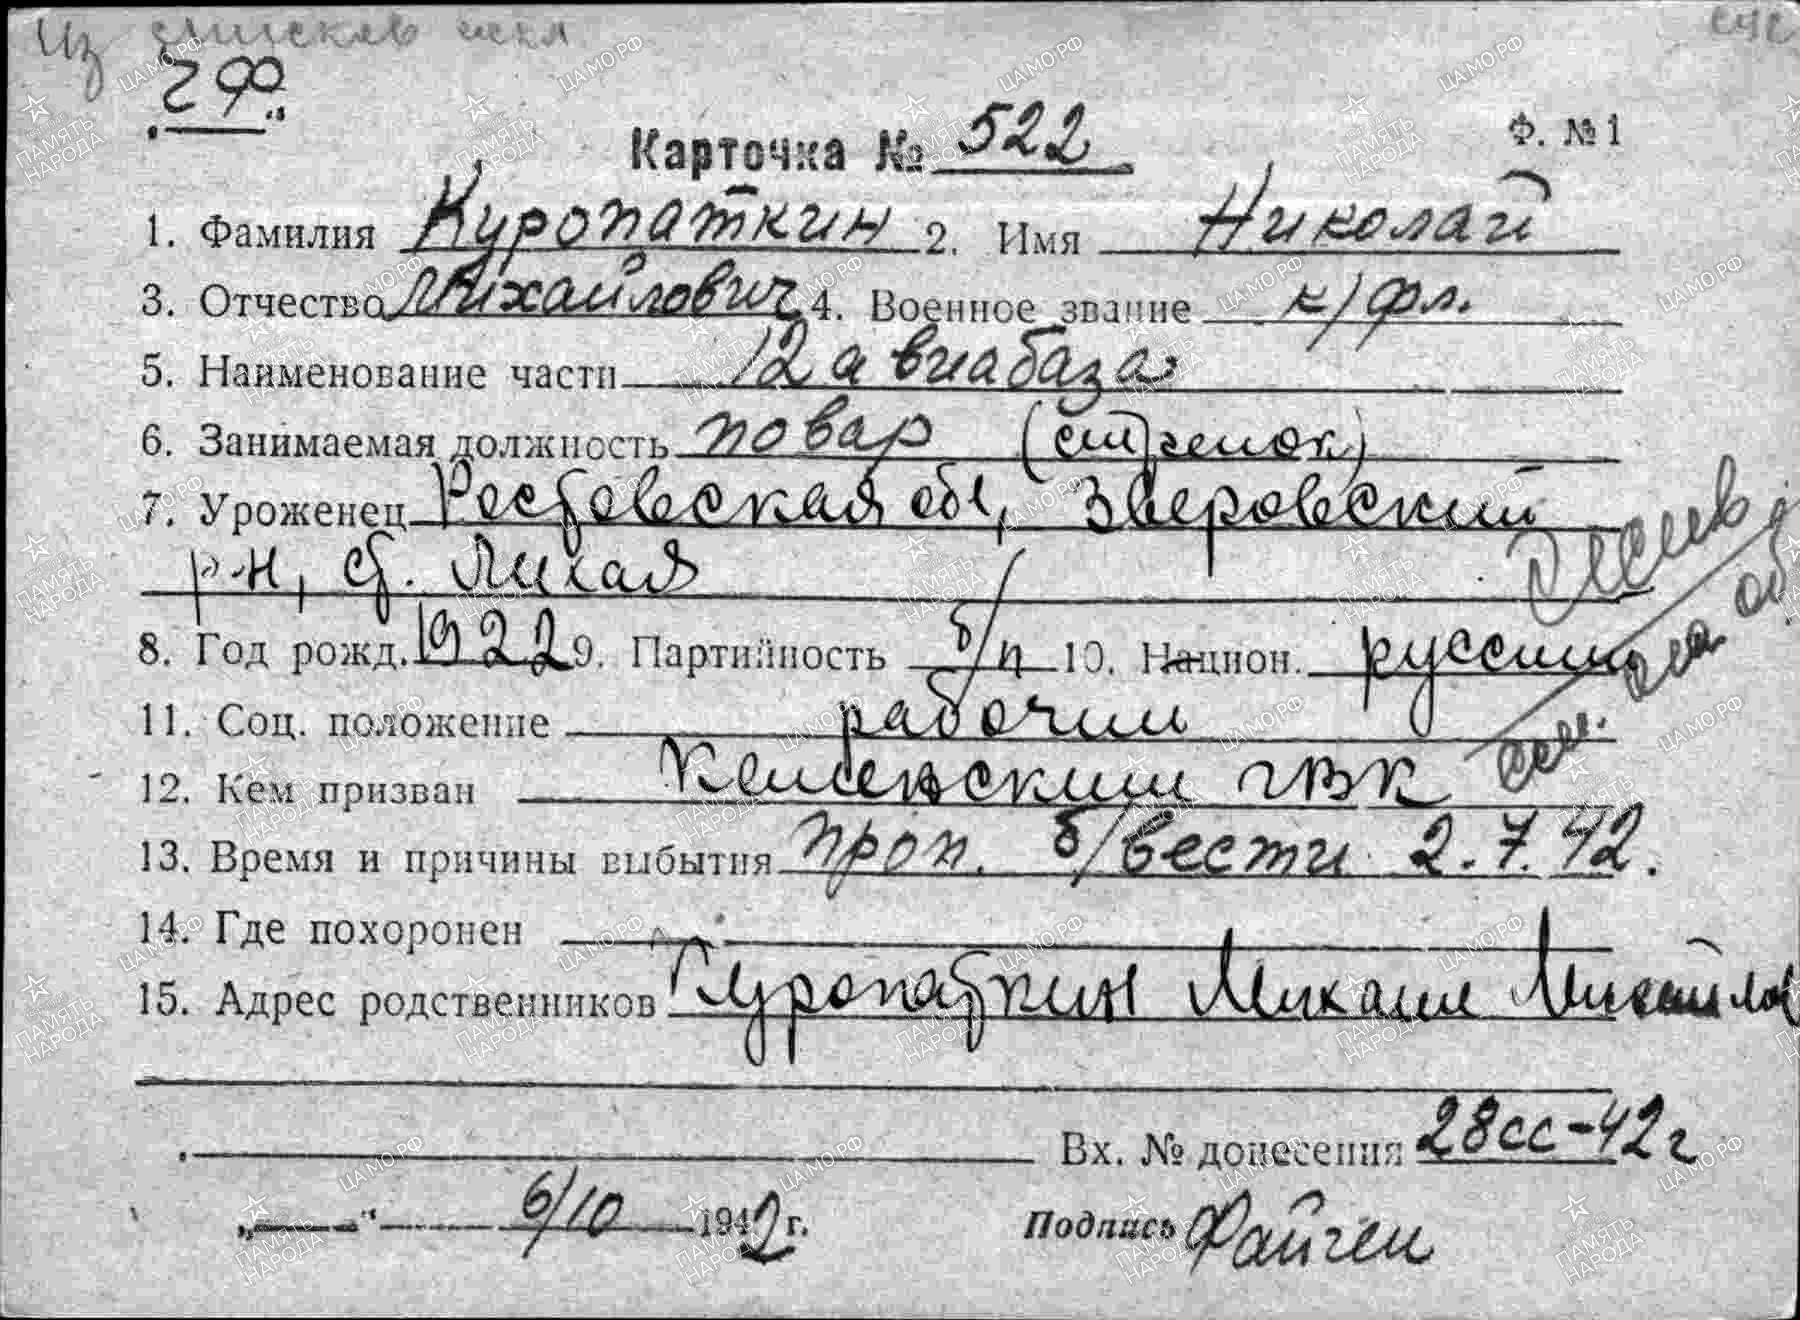 Из списков
Карточка № 522
Ф. № 1
1. Фамилия Куропаткин 2. Имя Николай
3. Отчество Михайлович 4. Военное звание к/фл.
5. Наименование части 12 авиабаза
6. Занимаемая должность повар (стрелок)
7. Уроженец Ростовская обл, Зверовский
р-н, ст. Лихая
8. Год рожд. 1922 9. Партийность б/п 10. Национ. русский
11. Соц. положение рабочий
12. Кем призван Каменский ГВК
13. Время и причины выбытия проп. б/вести 2.7.42.
14. Где похоронен
15. Адрес родственников Куропаткин Михаил Михайлов
Вх. № донесения 28сс-42г
„ “ 6/10 1942 г.
Подпись Файген